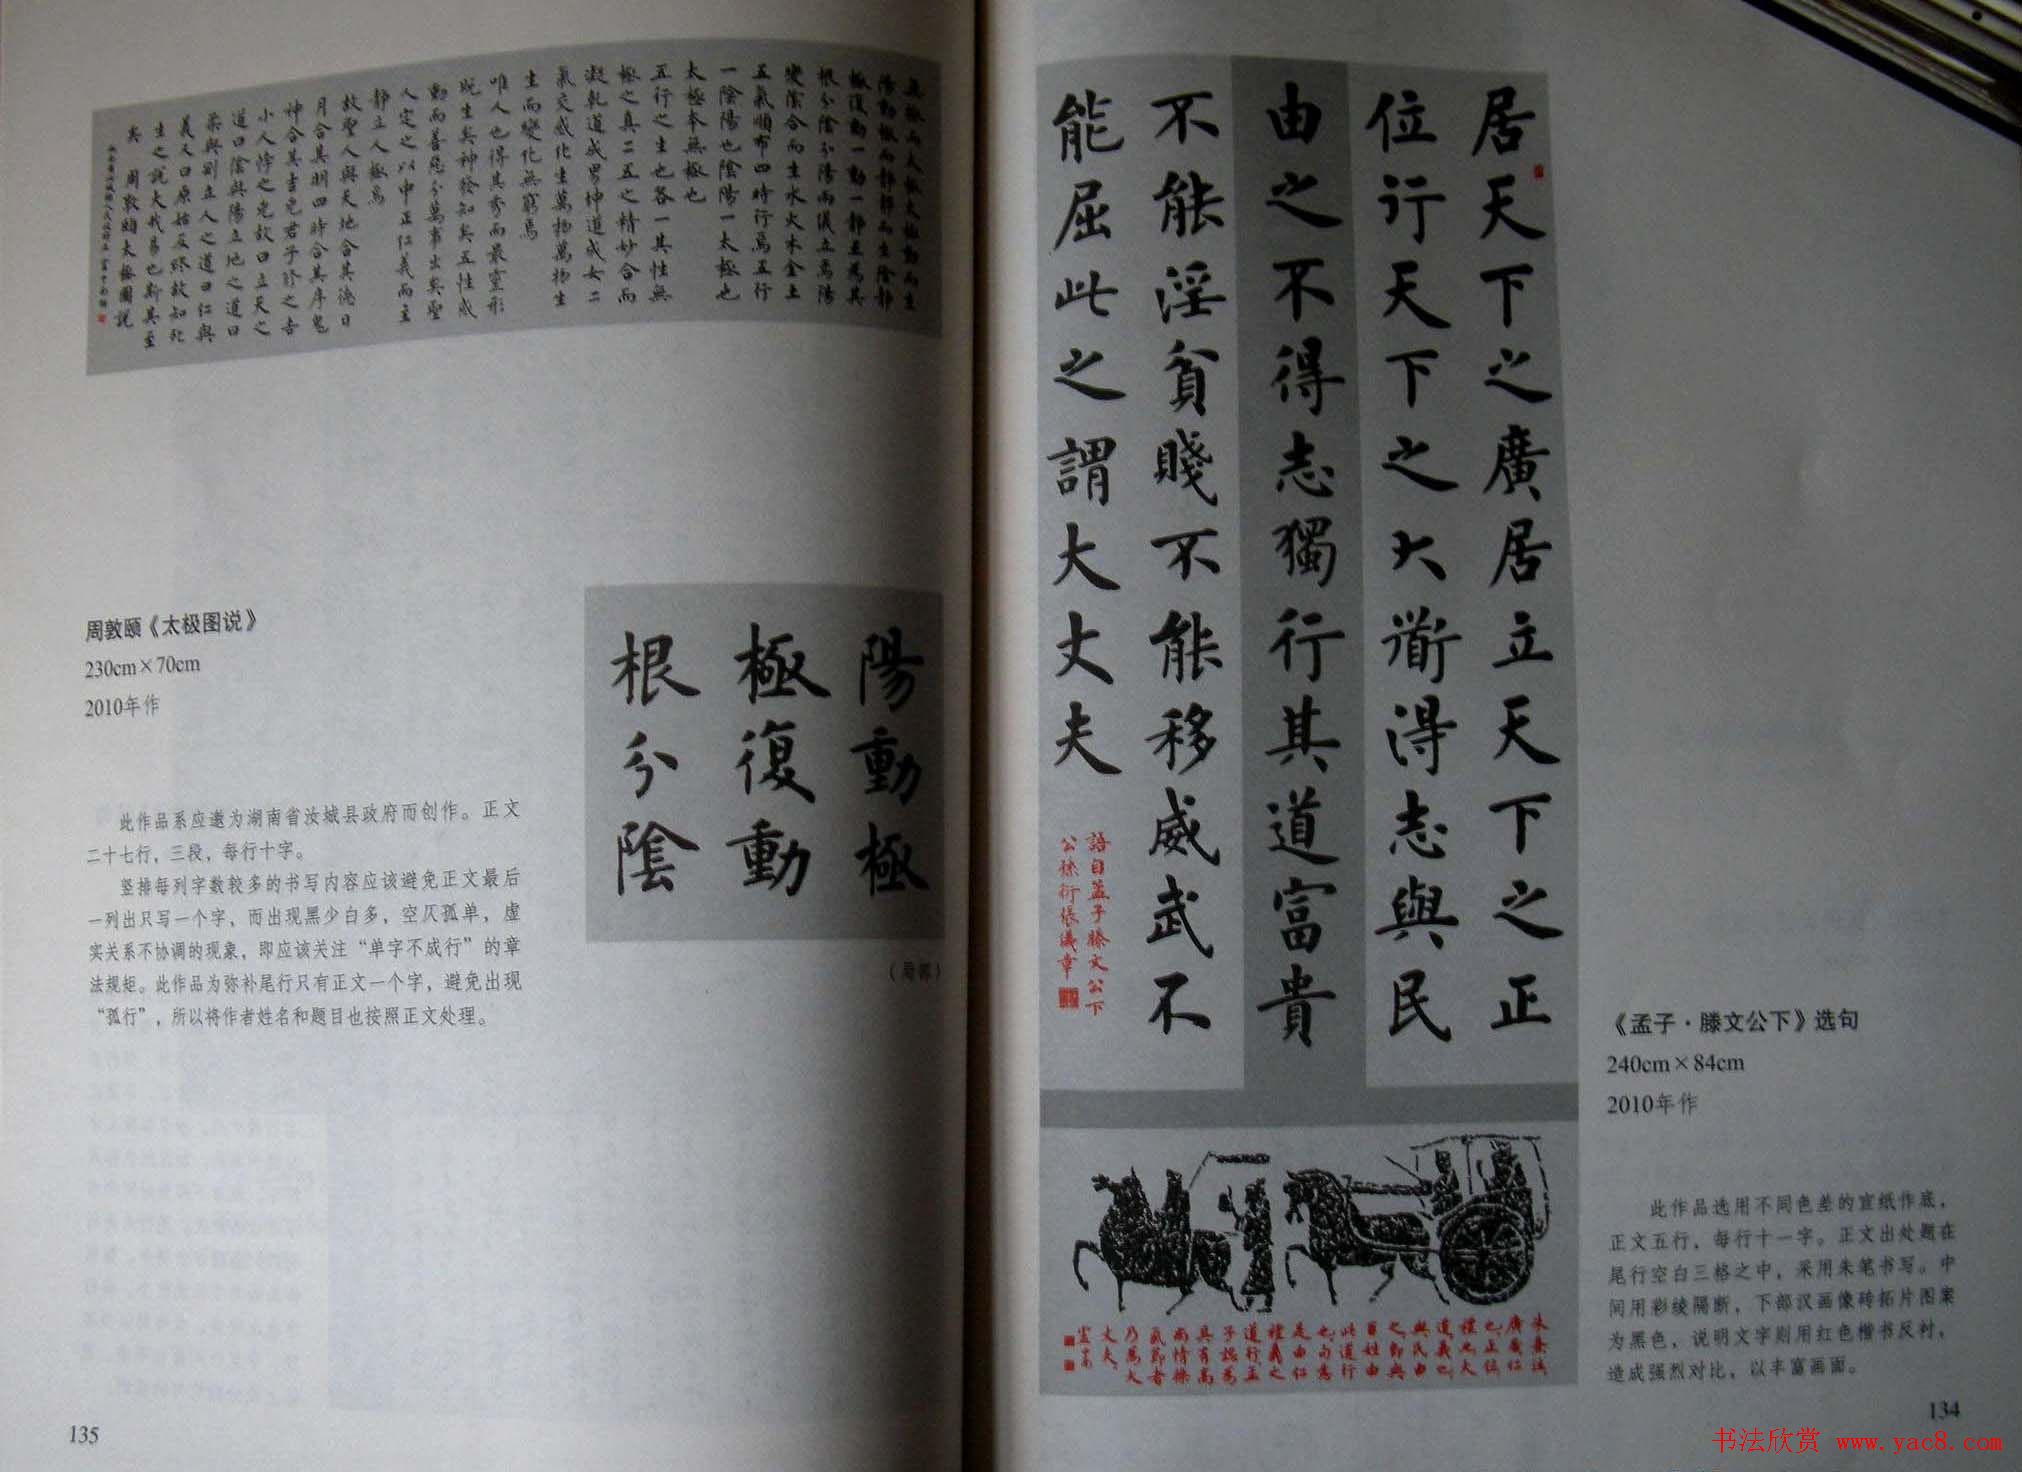 居天下之廣居立天下之正
位行天下之大道得志與民
由之不得志獨行其道富貴
不能淫貧賤不能移威武不
能屈此之謂大丈夫
語自孟子滕文公下
公孫衍張儀章
朱熹注
廣居仁
也正位
禮也大
道義也
與民由
之即與
百姓由
此道行
也句意
是由仁
禮義之
道行孟
子認為
具有高
尚情操
氣節者
乃為大
丈夫
《孟子·滕文公下》选句
240cm×84cm
2010年作
此作品选用不同色差的宣纸作底，
正文五行，每行十一字。正文出处题在
尾行空白三格之中，采用朱笔书写。中
间用彩绫隔断，下部汉画像砖拓片图案
为黑色，说明文字则用红色楷书反衬，
造成强烈对比，以丰富画面。
134
無極而太極太極動而生
陽動極而靜靜而生陰靜
極復動一動一靜互為其
根分陰分陽兩儀立焉陽
變陰合而生水火木金土
五氣順布四時行焉五行
一陰陽也陰陽一太極也
太極本無極也
五行之生也各一其性無
極之真二五之精妙合而
凝乾道成男坤道成女二
氣交感化生萬物萬物生
生而變化無窮焉
唯人也得其秀而最靈形
既生矣神發知矣五性感
動而善惡分萬事出矣聖
人定之以中正仁義而主
靜立人極焉
故聖人與天地合其德日
月合其明四時合其序鬼
神合其吉凶君子修之吉
小人悖之凶故曰立天之
道曰陰與陽立地之道曰
柔與剛立人之道曰仁與
義又曰原始反終故知死
生之說大哉易也斯其至
矣 周敦頤太極圖說
陽動極
極復動
根分陰
（局部）
周敦颐《太极图说》
230cm×70cm
2010年作
此作品系应邀为湖南省汝城县政府而创作。正文
二十七行，三段，每行十字。
竖排每列字数较多的书写内容应该避免正文最后
一列出只写一个字，而出现黑少白多，空仄孤单，虚
实关系不协调的现象，即应该关注“单字不成行”的章
法规矩。此作品为弥补尾行只有正文一个字，避免出现
“孤行”，所以将作者姓名和题目也按照正文处理。
135
书法欣赏 www.yac8.com